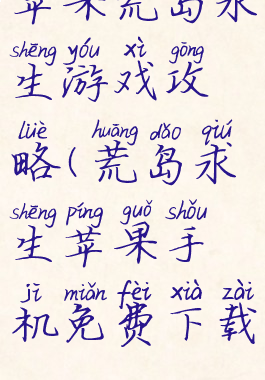 苹果荒岛求
shēng yóu xì gōng
生游戏攻
lüè huāng dǎo qiú
略(荒岛求
shēng píng guǒ shǒu
生苹果手
jī miǎn fèi xià zài
机免费下载